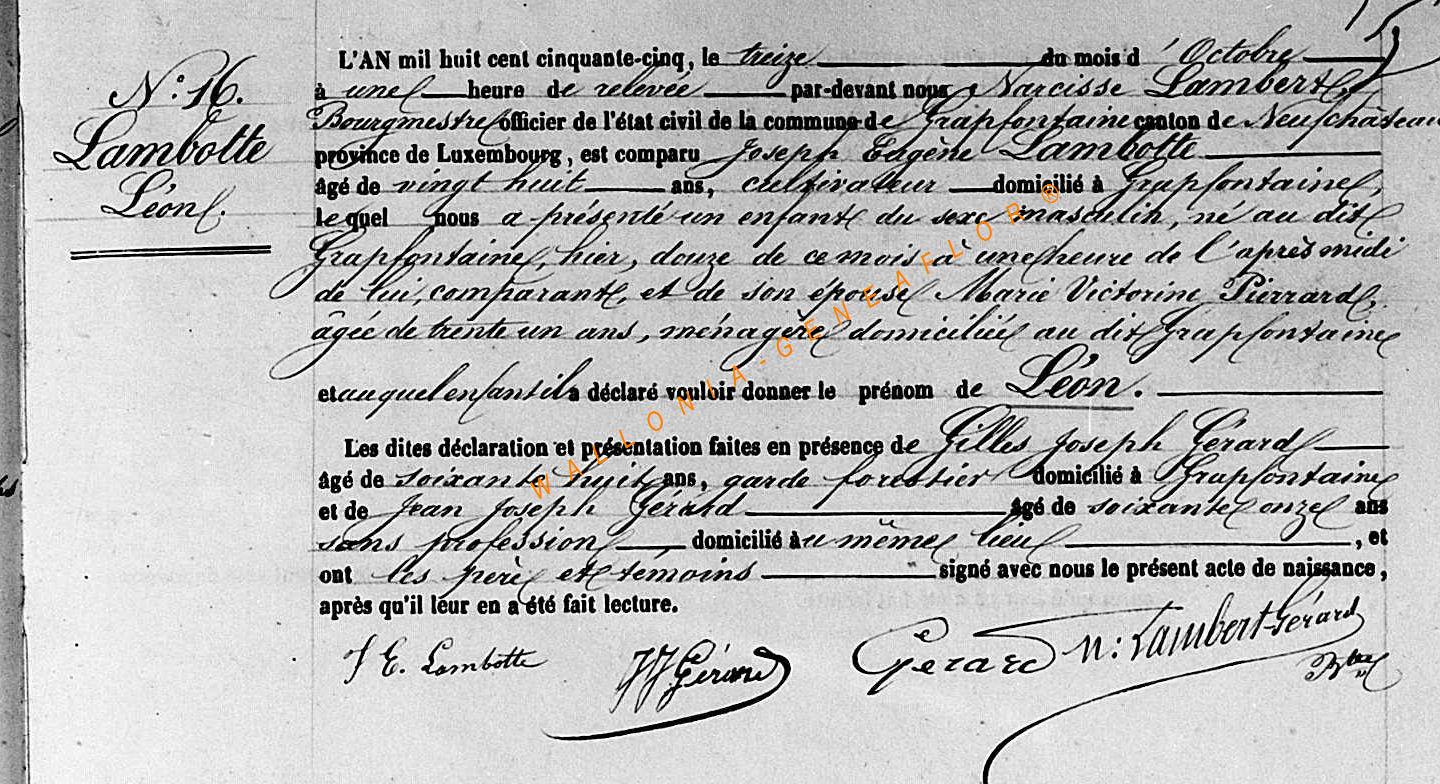 N.° 16.
Lambotte
Léon.
L'AN mil huit cent cinquante-cinq, le treize du mois d'Octobre
à une heure de relevée par-devant nous Narcisse Lambert,
Bourgmestre officier de l'état civil de la commune de Grapfontaine canton de Neufchâteau
province de Luxembourg, est comparu Joseph Eugène Lambotte
âgé de vingt huit ans, cultivateur domicilié à Grapfontaine,
le quel nous a présenté un enfant du sexe masculin, né au dit
Grapfontaine, hier, douze de ce mois à une heure de l'après midi
de lui, comparant, et de son épouse Marie Victorine Pierrard,
âgée de trente un ans, ménagère domiciliée au dit Grapfontaine
et auquel enfant il a déclaré vouloir donner le prénom de Léon.
Les dites déclaration et présentation faites en présence de Gilles Joseph Gérard
âgé de soixante huit ans, garde forestier domicilié à Grapfontaine
et de Jean Joseph Gérard âgé de soixante onze ans
sans profession, domicilié au même lieu, et
ont les père et temoins signé avec nous le présent acte de naissance,
après qu'il leur en a été fait lecture.
J E. Lambotte JJ Gérard Gerard N: Lambert-Gérard
WALLONIA-GENEAFLOR ®